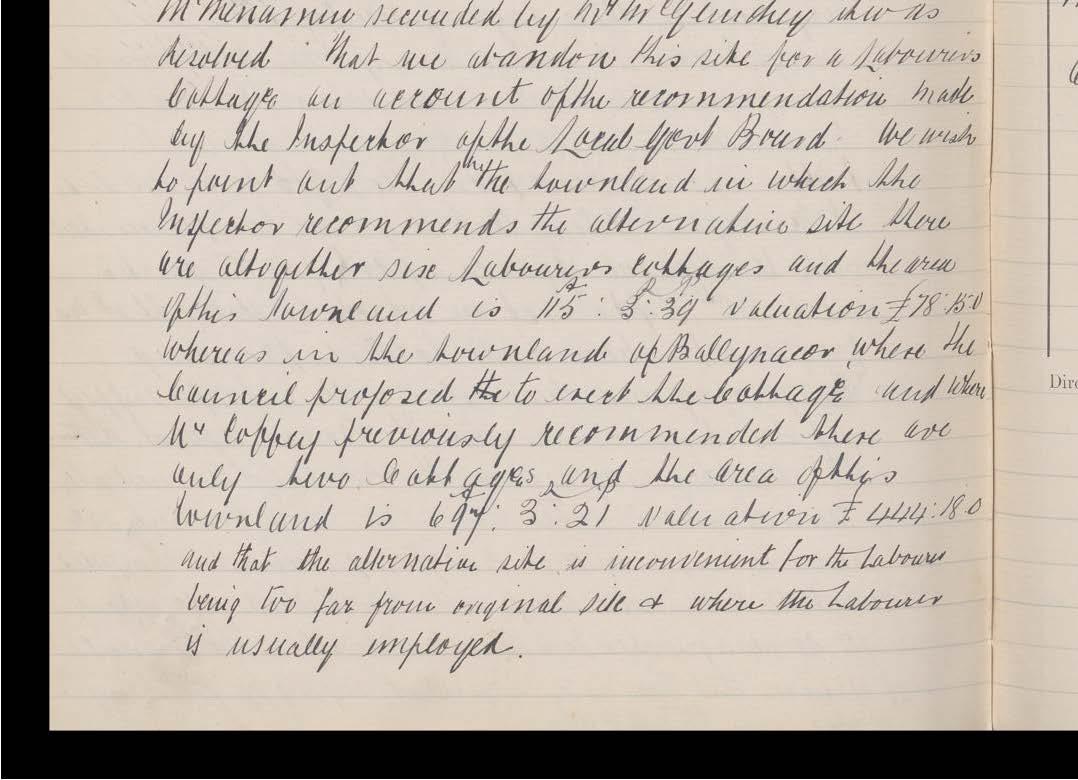 McMenamin seconded by Mr McGlinchey it was
Resolved "That we abandon this site for a Labourers
Cottage on account of the recommendation made
by the Inspector of the Local Govt Board. We wish
to point out that in the townland in which the
Inspector recommends the alternative site there
are altogether six Labourers cottages and the area
A R P
of this townland is 115 : 3 : 39 valuation £78:15:0
whereas in the townland of Ballynacor where the
Council proposed to erect the Cottage and where
Mr Coffey previously recommended there are
only two Cottages and the area of this
A R P
townland is 697 : 3 : 21 valuation £444:18:0
and that the alternative site is inconvenient for the Labourer
being too far from original site & where the Labourer
is usually employed.
Dire